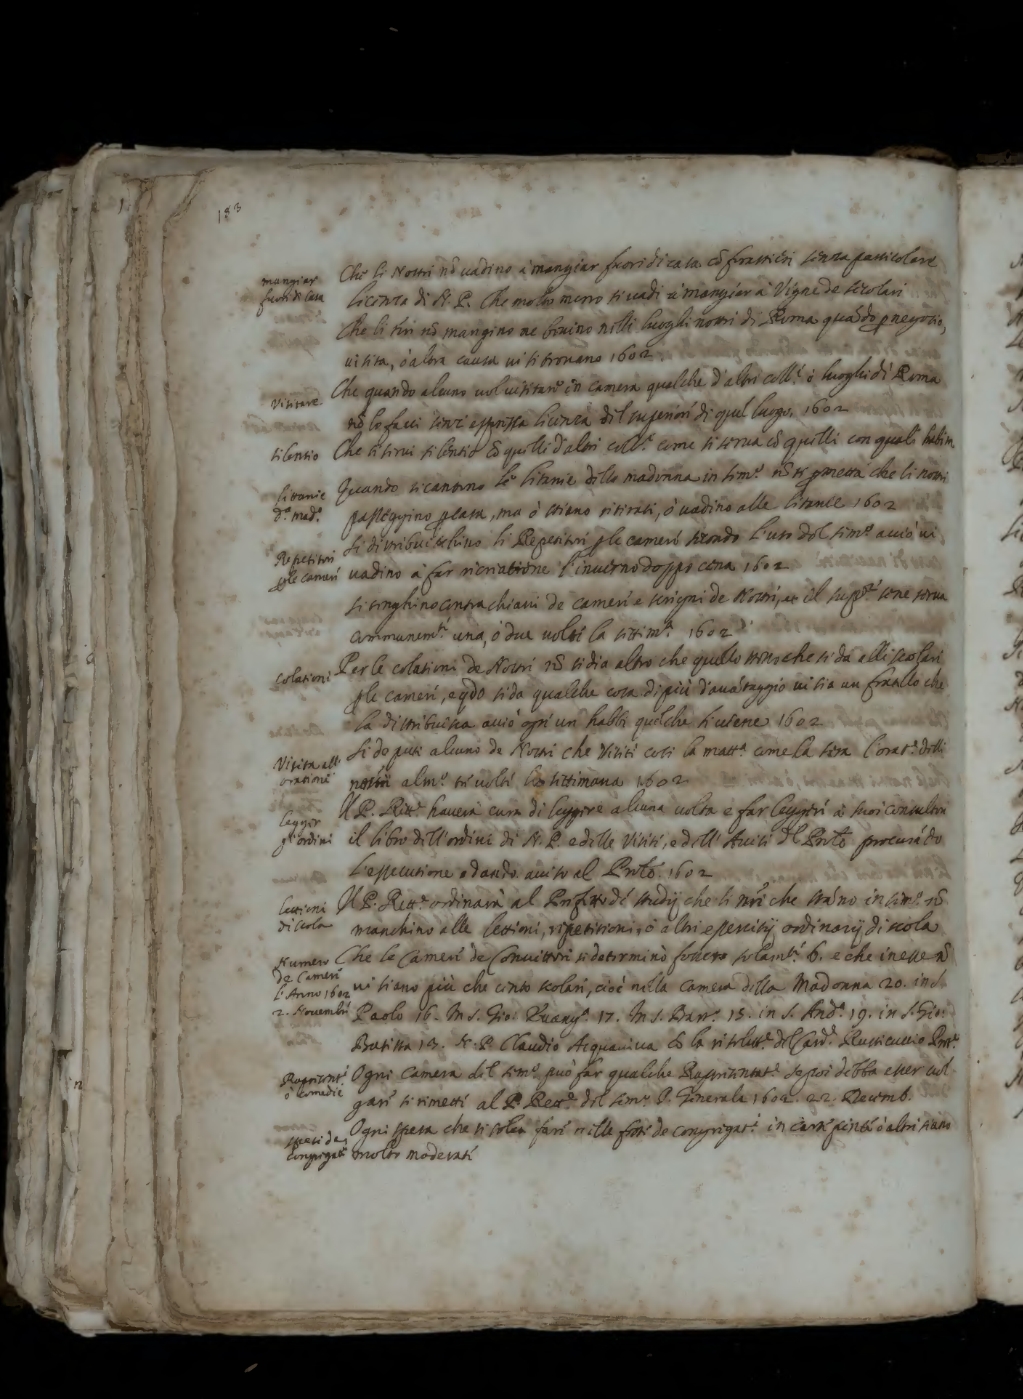 183
mangiar
fuori di casa
Che li Nostri nõ vadino à mangiar fuori di casa cõ frastieri senza particolare
licenza di N. P. Che molto meno si vadi à mangiar à Vigne de secolari
Che li tiri nõ mangino ne bevino nelli luoghi nostri di Roma quãdo p negotio,
visita, ò altra causa vi si trovano 1602
Visitare
Che quando alcuno vol visitare in camera qualche d'altri coll.ⁱ ò luoghi di Roma
nõ lo facci senz' espressa licenza del superiore di quel luogo. 1602
silentio
Che si servi silentio cõ quelli d'altri coll.ⁱ come si serva cõ quelli con quali habitⁿ
littanie
d.ᵃ mad.ᵃ
Quando si cantano le litanie della madonna in sem.º nõ si pmetta che li nostri
passeggino p casa, ma ò stiano ritirati, ò vadino alle litanie 1602
Repetitori
p le cameri
Si distribuischino li Repetitori p le cameri secondo l'uso del sem.º acciò vi
vadino à far ricriatione l'inverno doppo cena 1602
si tenghino contrachiavi de cameri e scrigni de Nostri, et il sup.ʳᵉ sene serva
communem.ᵗᵉ una, ò due volte la settim.ᵃ 1602
Colationi
Per le colationi de Nostri nõ si dia altro che quello stesso che si da alli scolari
p le cameri, e qdo si da qualche cosa di più d'avãtaggio vi sia un fratello che
la distribuisca acciò ogn' un' habbi quel che li viene 1602
Visita all'
oratione
Si deputi alcuno de Nostri che visiti così la matt.ᵃ come la sera l'orat.ⁿᵉ delli
nostri alm.º tre volte la settimana 1602
leggir
gl' ordini
Il P. Rett.ʳᵉ haverà cura di leggere alcuna volta e far leggere à suoi consultori
il libro dell' ordini di N. P. e delle Visite, e dell' Avisi del Prõle procurãdo
l'essecutione e dando aviso al Prõle. 1602
lettioni
di scola
Il P. Rett.ʳᵉ ordinarà al Prefetto de studij che li nri che stãno in sem.º nõ
manchino alle lettioni, ripetitioni, ò altri essercitij ordinarij di scola
Numero
de Cameri
l'Anno 1602
2. Novembri
Che le Cameri de Convittori si determinò fossero solam.ᵗᵉ 6. e che in esse nõ
vi siano più che cento scolari, cioè nella Camera della Madonna 20. in S.
Paolo 16. In S. Gio: Evang.ᵗᵃ 17. In S. Bart.º 15. in S. And.ᵃ 19. in S. Gio:
Batista 13. N. P. Claudio Acquaviva cõ la risolut.ⁿᵉ del Card.ˡ Rusticuccio Prot.ʳᵉ
Rapresent.ⁿⁱ
ò comedie
Ogni Camera del sem.º può far qualche Rapresentat.ⁿᵉ se poi debba esser vol-
gare si rimette al P. Rett.ʳᵉ del sem.º P. Generale 1602. 22. Decemb.
spesi de
congregat.ⁿⁱ
Ogni spesa che si soleva fare nelle feste de congregat.ⁿⁱ in carte pinte ò altri siano
molto moderati